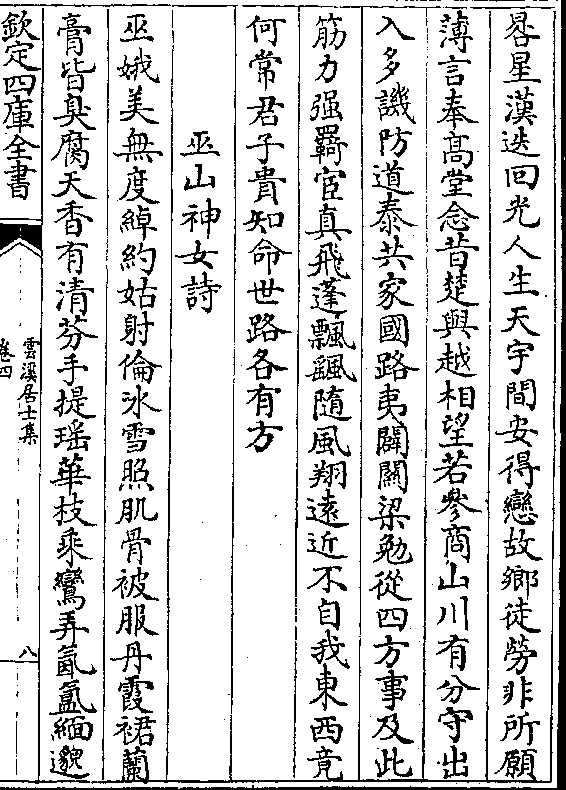 晷星漢迭回光人生天宇間安得戀故鄉徒勞非所願
薄言奉髙堂念昔楚與越相望若參商山川有分守出
入多譏防道泰共家國路夷闢關梁勉從四方事及此
筋力强羇宦真飛蓬飄颻隨風翔逺近不自我東西竟
何常君子貴知命世路各有方
巫山神女詩
巫娥美無度綽約姑射倫冰雪照肌骨被服丹霞裙蘭
膏皆臭腐天香有清芬手提瑶華枝乘鸞弄氤氲緬邈
欽定四庫全書
雲溪居士集
卷四
八